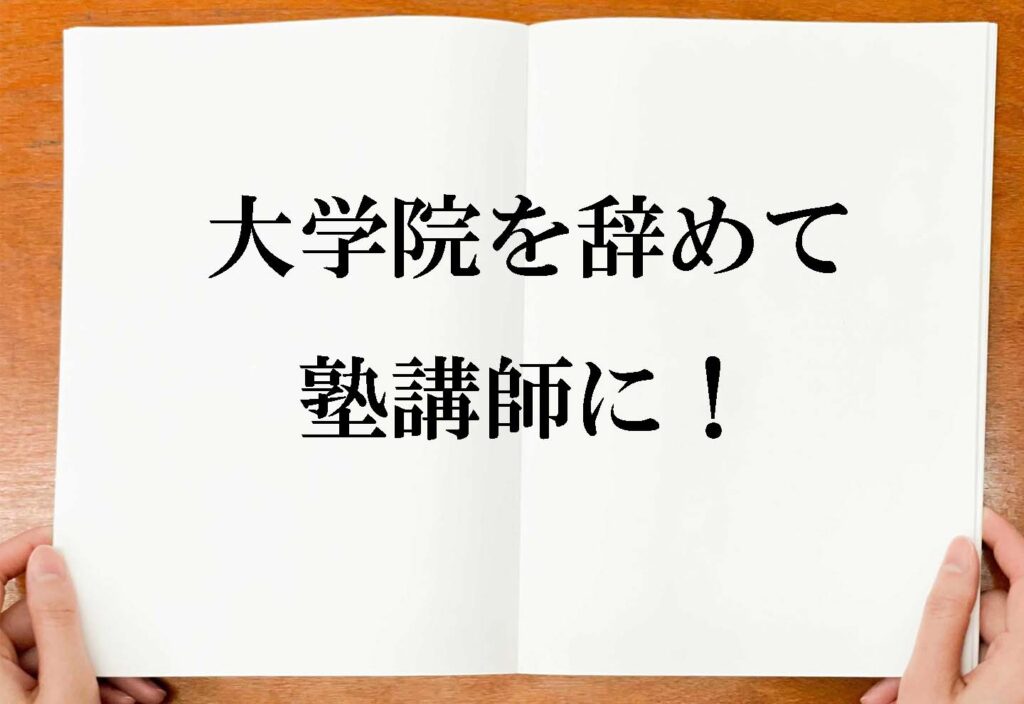 大学院を辞めて
塾講師に！